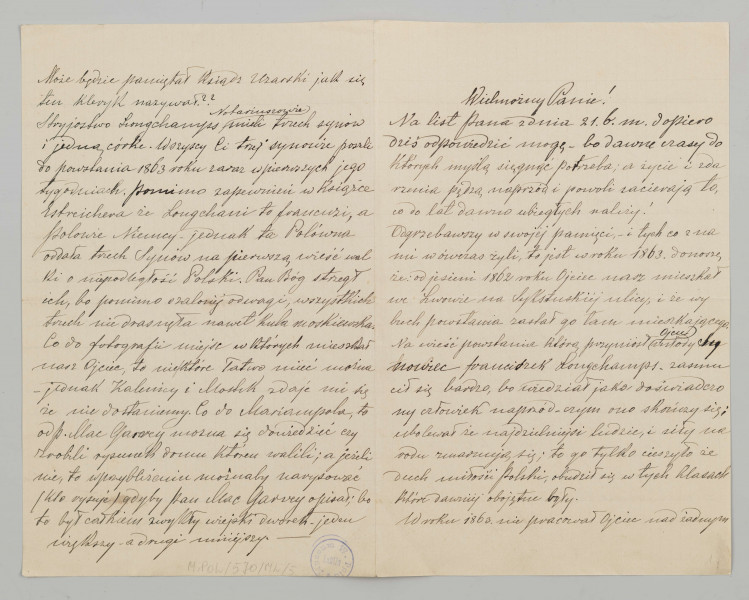 Może będzie pamiętał Ksiądz Uzarski jak się
ten kleryk nazywał??
Notariuszowie
Stryjostwo Longchamps mieli trzech synów
i jedną córkę. Wszyscy Ci trzej synowie poszli
do powstania 1863 roku zaraz w pierwszych jego
tygodniach. Pomimo zapewnień w książce
Estreichera że Longchami to francuzi, a
Polowie Niemcy - jednak ta Polówna
oddała trzech Synów na pierwszą wieść wal-
ki o niepodległość Polski. Pan Bóg strzegł
ich, bo pomimo szalonej odwagi, wszystkich
trzech nie drasnęła nawet kula moskiewska.
Co do fotografii miejsc w których mieszkał
nasz Ojciec, to niektóre Łatwo mieć można
- jednak Kaluszy i Mostk zdaje mi się
że nie dostaniemy. Co do Mariampola, to
od p. Mac Garvey można się dowiedzieć czy
zrobili rysunek domu którem walili; a jeżeli
nie, to w przybliżeniu możnaby narysować
(kto rysuje) gdyby pan Mac Garvey opisał; bo
to był całkiem zwykły wiejski dworek - jeden
większy - a drugi mniejszy —
M.POL/570/ML/5
Wielmożny Panie!
Na list Pana z dnia 21. b. m. dopiero
dziś odpowiedzieć mogę - bo dawne czasy do
których myślą sięgnąć potrzeba; a życie i zda-
rzenia pędzą naprzód i powoli zacierają to,
co do lat dawno ubiegłych należy!
Odgrzebawszy w swojej pamięci, - i tych co z na-
mi wówczas żyli, to jest w roku 1863. donoszę,
że: od jesieni 1862 roku Ojciec nasz mieszkał
we Lwowie na Sykstuskiej ulicy, i że wy-
buch powstania zastał go tam mieszkającego.
Na wieść powstania którą przyniósł Ojcu młody sy-
nowiec Franciszek Longchamps - zasmu-
cił się bardzo, bo wiedział jako doświadczo-
ny człowiek naprzód - czym ono skończy się;
ubolewał że najdzielniejsi ludzie, i siły na-
rodu zmarnują się; to go tylko cieszyło że
duch miłości Polski, obudził się w tych klasach
które dawniej obojętne były.
W roku 1863. nie pracował Ojciec nad żadnym